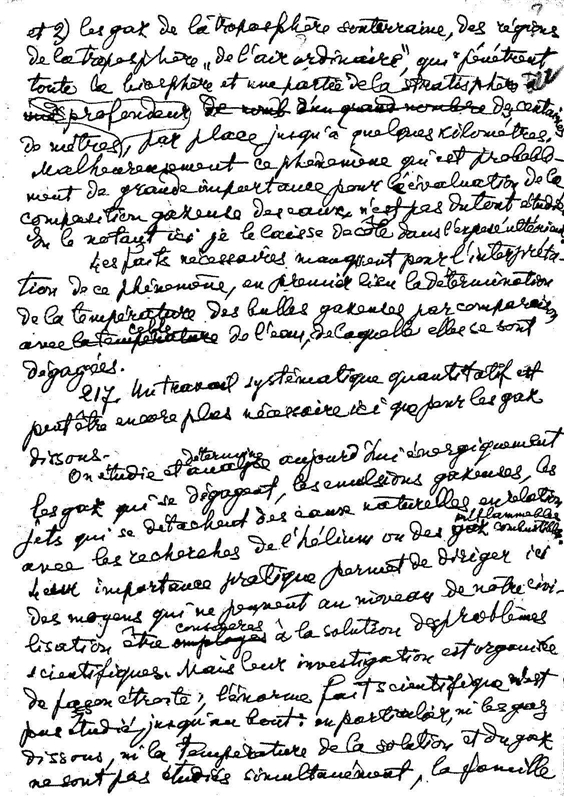 et 2) les gaz de la troposphère souterraine, des régions
de la troposphère „de l'air ordinaire", qui pénétrent
toute la biosphère et une partie de la stratisphère
profondeur de centaines
de mètres, par place jusqu'à quelques kilomètres.
Malheureusement ce phénomène qui est probable-
ment de grande importance pour l'évaluation de la
composition gazeuse des eaux, n'est pas du tout étudié
En le notant ici je le laisse de côté dans l'exposé ultérieur.
Les faits nécessaires manquent pour l'interpréta-
tion de ce phénomène, en premier lieu la détermination
de la température des bulles gazeuses par comparaison
avec celle de l'eau, de laquelle elles se sont
dégagées.
217. Un travail systématique quantitatif est
peut être encore plus nécessaire ici que pour les gaz
dissous.
On étudie et détermine aujourd'hui énergiquement
les gaz qui se dégagent, les emulsions gazeuses, les
jets qui se détachent des eaux naturelles en relation
avec les recherches de l'hélium ou des gaz inflammables combustibles.
Leur importance pratique permet de diriger ici
des moyens qui ne peuvent au niveau de notre civi-
lisation être consacrés à la solution des problèmes
scientifiques. Mais leur investigation est organisée
de façon étroite; l'énorme fait scientifique n'est
pas étudié jusqu'au bout: en particulier, ni les gaz
dissous, ni la température de la solution et du gaz
ne sont pas étudiés simultanément, la famille